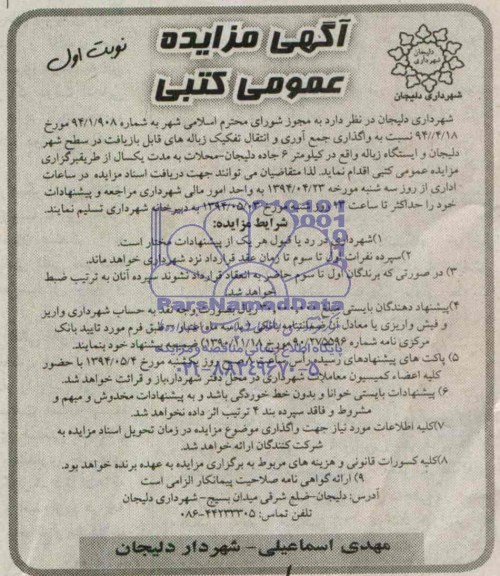 نوبت اول
آگهی مزایده
عمومی کتبی
دلیجان
شهرداری
شهرداری دلیجان
شهرداری دلیجان در نظر دارد به مجوز شورای محترم اسلامی شهر به شماره ۹۴/۱/۹۰۸ مورخ
۹۴//۴/۱۸ نسبت به واگذاری جمع آوری و انتقال تفکیک زباله های قابل بازیافت در سطح شهر
دلیجان و ایستگاه زباله واقع در کیلومتر ۶ جاده دلیجان-محلات به مدت یکسال از طریقبرگزاری
مزایده عمومی کتبی اقدام نماید. لذا متقاضیان می توانند جهت دریافت اسناد مزایده در ساعات
اداری از روز سه شنبه مورخه ۱۳۹۴/۰۴/۲۳ به واحد امور مالی شهرداری مراجعه و پیشنهادات
خود را حداکثر تا ساعت شنبه مورخ ۱۳۹۴/۰۵/۰۳ به دبیرخانه شهرداری تسلیم نمایند.
شرایط مزایده:
۱)شهرداری در رد یا قبول هر یک از پیشنهادات مختار است.
۲)سپرده نفرات اول تا سوم تا زمان عقد قرارداد نزد شهرداری خواهد ماند.
۳) در صورتی که برندگان اول تا سوم حاضر به انعقاد قرارداد نشوند سپرده آنان به ترتیب ضبط
خواهد شد.
۴)پیشنهاد دهندگان بایستی مبلغ ریال بصورت وجه نقد به حساب شهرداری واریز
و فیش واریزی یا معادل آن ضمانتنامه بانکی با سه ماه اعتبار طبق فرم مورد تایید بانک
مرکزی نامه شماره ۹۰/۲۷۵۵۹۶ مورخ ضمیمه پیشنهاد خود بنمایند.
۵) پاکت های پیشنهادهای رسیده راس ساعت صبح روز یکشنبه مورخ ۱۳۹۴/۰۵/۴ با حضور
کلیه اعضاء کمیسیون معاملات شهرداری در محل دفتر شهردار،باز و قرائت خواهد شد.
۶) پیشنهادات بایستی خوانا و بدون خط خوردگی باشد و به پیشنهادات مخدوش و مبهم و
مشروط و فاقد سپرده بند ۴ ترتیب اثر داده نخواهد شد.
۷)کلیه اطلاعات مورد نیاز جهت واگذاری موضوع مزایده در زمان تحویل اسناد مزایده به
شرکت کنندگان ارائه خواهد شد.
۸)کلیه کسورات قانونی و هزینه های مربوط به برگزاری مزایده به عهده برنده خواهد بود.
۹) ارائه گواهی نامه صلاحیت پیمانکار الزامی است
آدرس: دلیجان-ضلع شرقی میدان بسیج- شهرداری دلیجان
تلفن تماس: ۴۴۲۳۳۳۰۵-۰۸۶
مهدی اسماعیلی- شهردار دلیجان
ParsNamadData
پایگاه اطلاع رسانی مناقصه و مزایده
۰۲۱-۸۸۳۴۹۶۷۰-۵